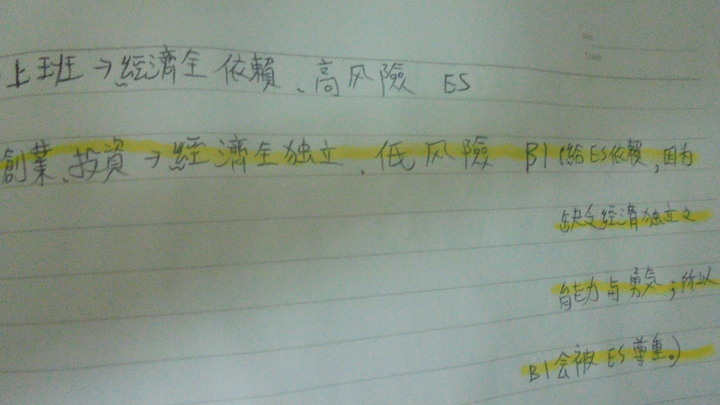 上班→經濟全依賴、高风險 ES
創業、投資→經濟全独立、低风險 BI(給ES依賴,因为
缺乏經濟独立之
能力与勇気;所以
BI会被ES尊重。)